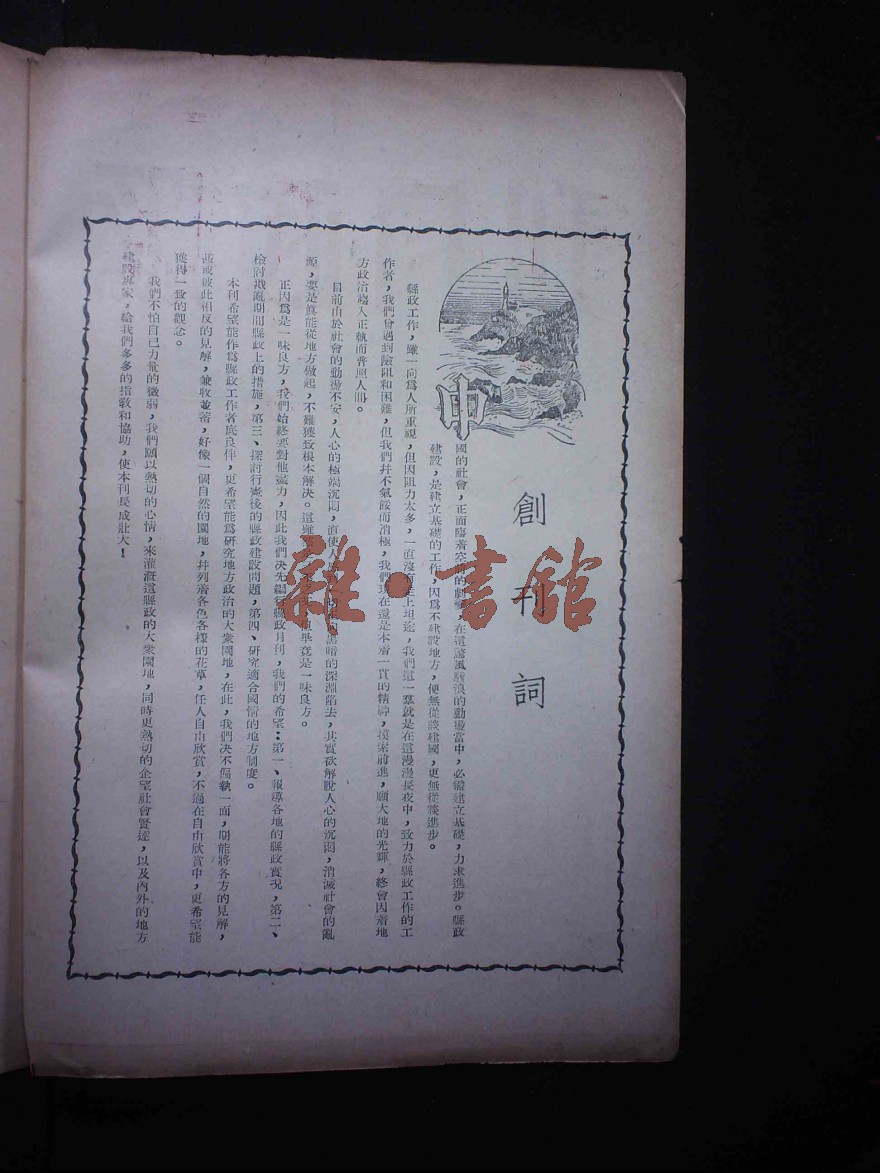 創刊詞
中
國的社會，正面臨着空前的劇變，在這驚風駭浪的動盪當中，必需建立基礎，力求進步。縣政
建設，是建立基礎的工作，因爲不建設地方，便無從談建國，更無從談進步。
縣政工作，雖一向爲人所重視，但因阻力太多，一直沒有走上坦途，我們這一羣就是在這漫漫長夜中，致力於縣政工作的工
作者，我們曾遇到險阻和困難，但我們并不氣餒而消極，我們現在還是本着一貫的精神，摸索前進，願大地的光輝，終會因着地
方政治趨入正軌而普照人間。
目前由於社會的動盪不安，人心的極端沉悶，直使人黑暗的深淵陷去，其實欲解脫人心的沉悶，消滅社會的亂
源，要是眞能從地方做起，不難獲致根本解決。這雖畢竟是一味良方。
正因爲是一味良方，我們始終要對他盡力，因此我們決先編行縣政月刊，我們的希望：第一、報導各地的縣政實況，第二、
檢討戡亂期間縣政上的措施，第三、探討行憲後的縣政建設問題，第四、研究適合國情的地方制度。
本刊希望能作爲縣政工作者底良伴，更希望能爲研究地方政治的大衆園地，在此，我們決不偏執一面，期能將各方的見解，
甚或彼此相反的見解，兼收並蓄，好像一個自然的園地，幷列着各色各樣的花草，任人自由欣賞，不過在自由欣賞中，更希望能
獲得一致的觀念。
我們不怕自己力量的微弱，我們願以熱切的心情，來灌漑這縣政的大衆園地，同時更熱切的企望社會賢達，以及內外的地方
建設專家，給我們多多的指敎和協助，使本刊長成壯大！
雜·書館